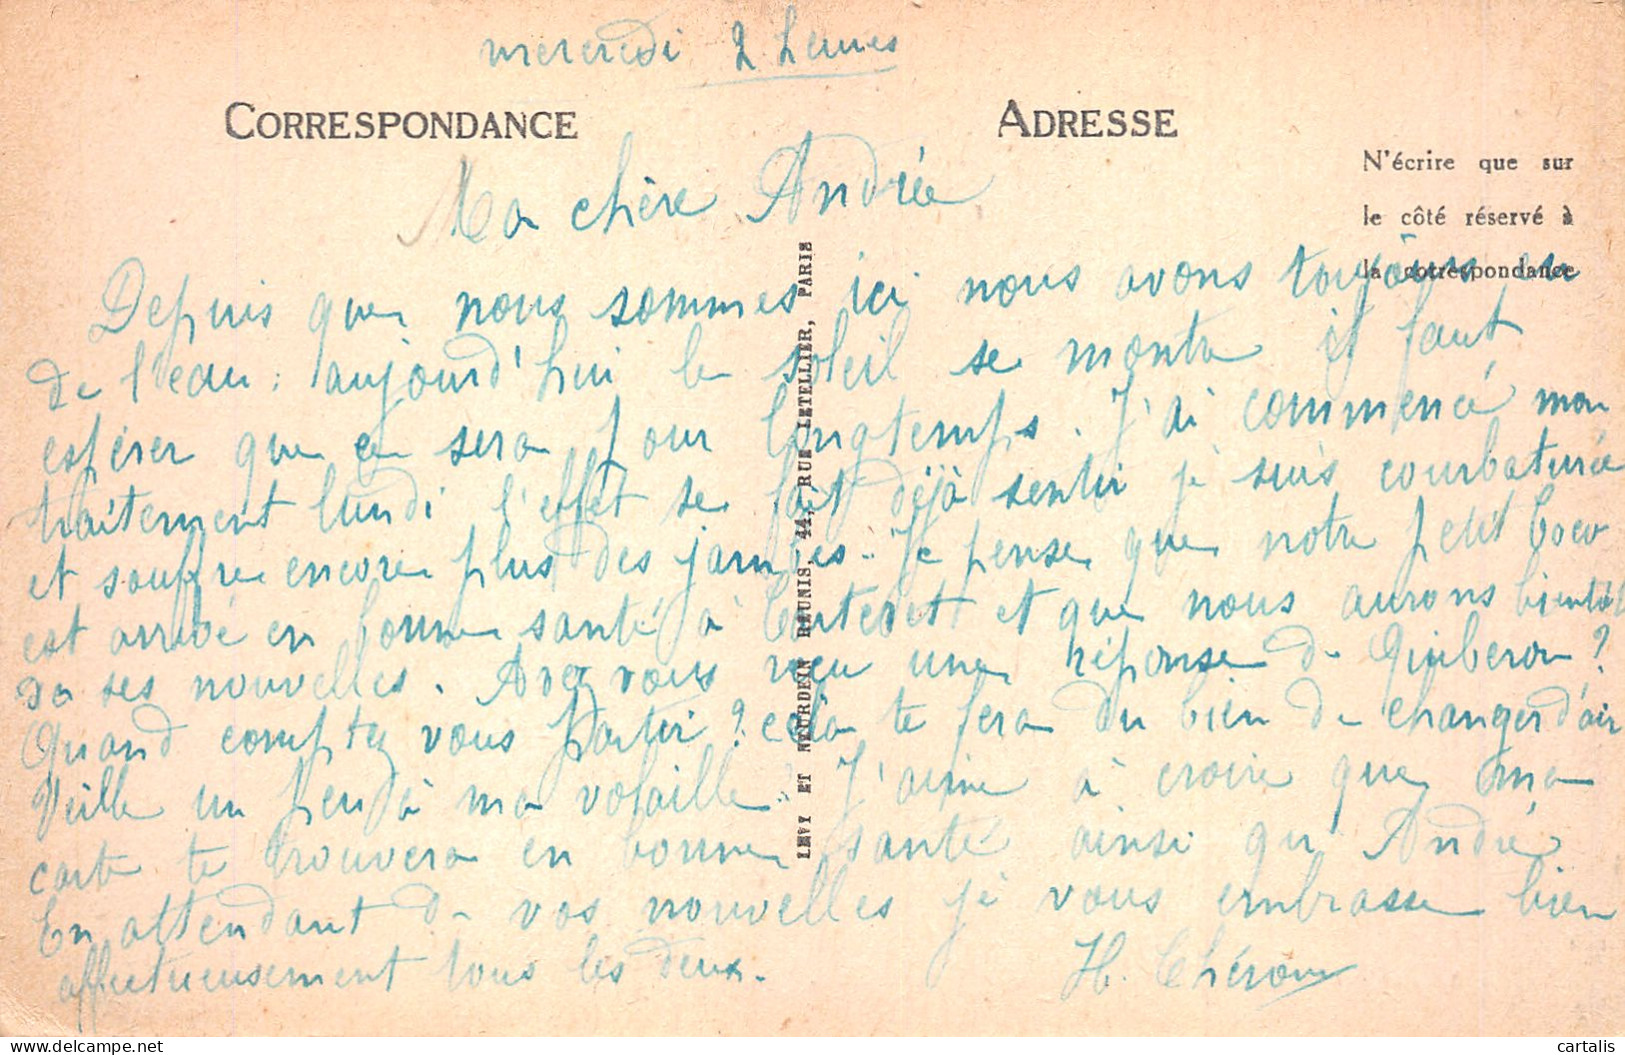 mercredi 2 heures
CORRESPONDANCE
ADRESSE
N'écrire que sur
le côté réservé à
la correspondance
Ma chère Andrée
Depuis que nous sommes ici nous avons toujours eu
de l'eau; aujourd'hui le soleil se montre il faut
espérer que ce sera pour longtemps. J'ai commencé mon
traitement lundi l'effet se fait déjà sentir je suis courbaturée
et souffre encore plus des jambes. Je pense que notre petit Coco
est arrivé en bonne santé à Carteret et que nous aurons bientôt
de ses nouvelles. Avez vous reçu une réponse de Quiberon?
Quand comptez vous partir? cela te fera du bien de changer d'air
Veille un peu à ma volaille. J'aime à croire que ma
carte te trouvera en bonne santé ainsi qu'André
En attendant de vos nouvelles je vous embrasse bien
affectueusement tous les deux.
H. Chéron
LEVY ET NEURDEIN REUNIS, 44, RUE LETELLIER, PARIS
cartalis